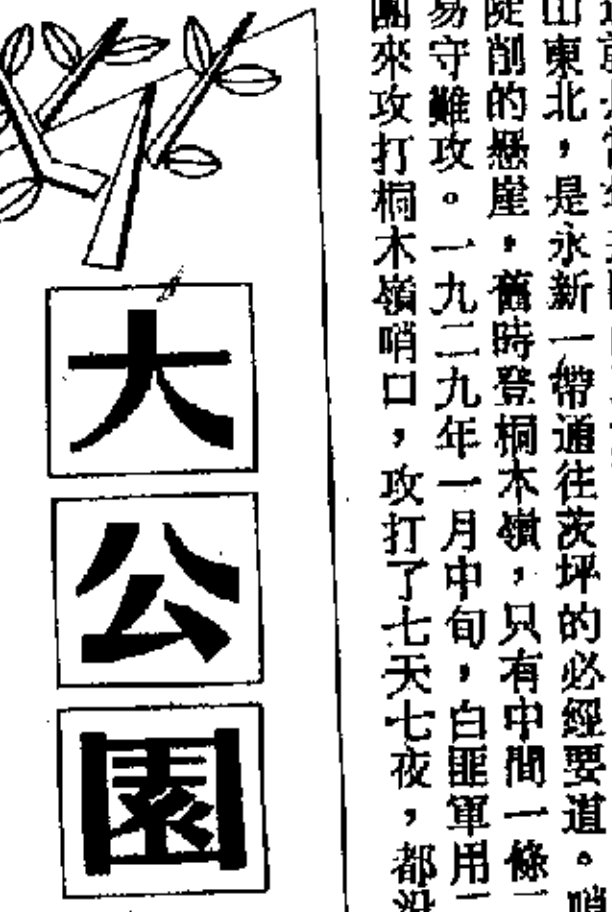 山東北，是永新一帶通往茨坪的必經要道。哨
陡削的懸崖，舊時登桐木嶺，只有中間一條
易守難攻。一九二九年一月中旬，白匪軍用
團來攻打桐木嶺哨口，攻打了七天七夜，都沒
大公園